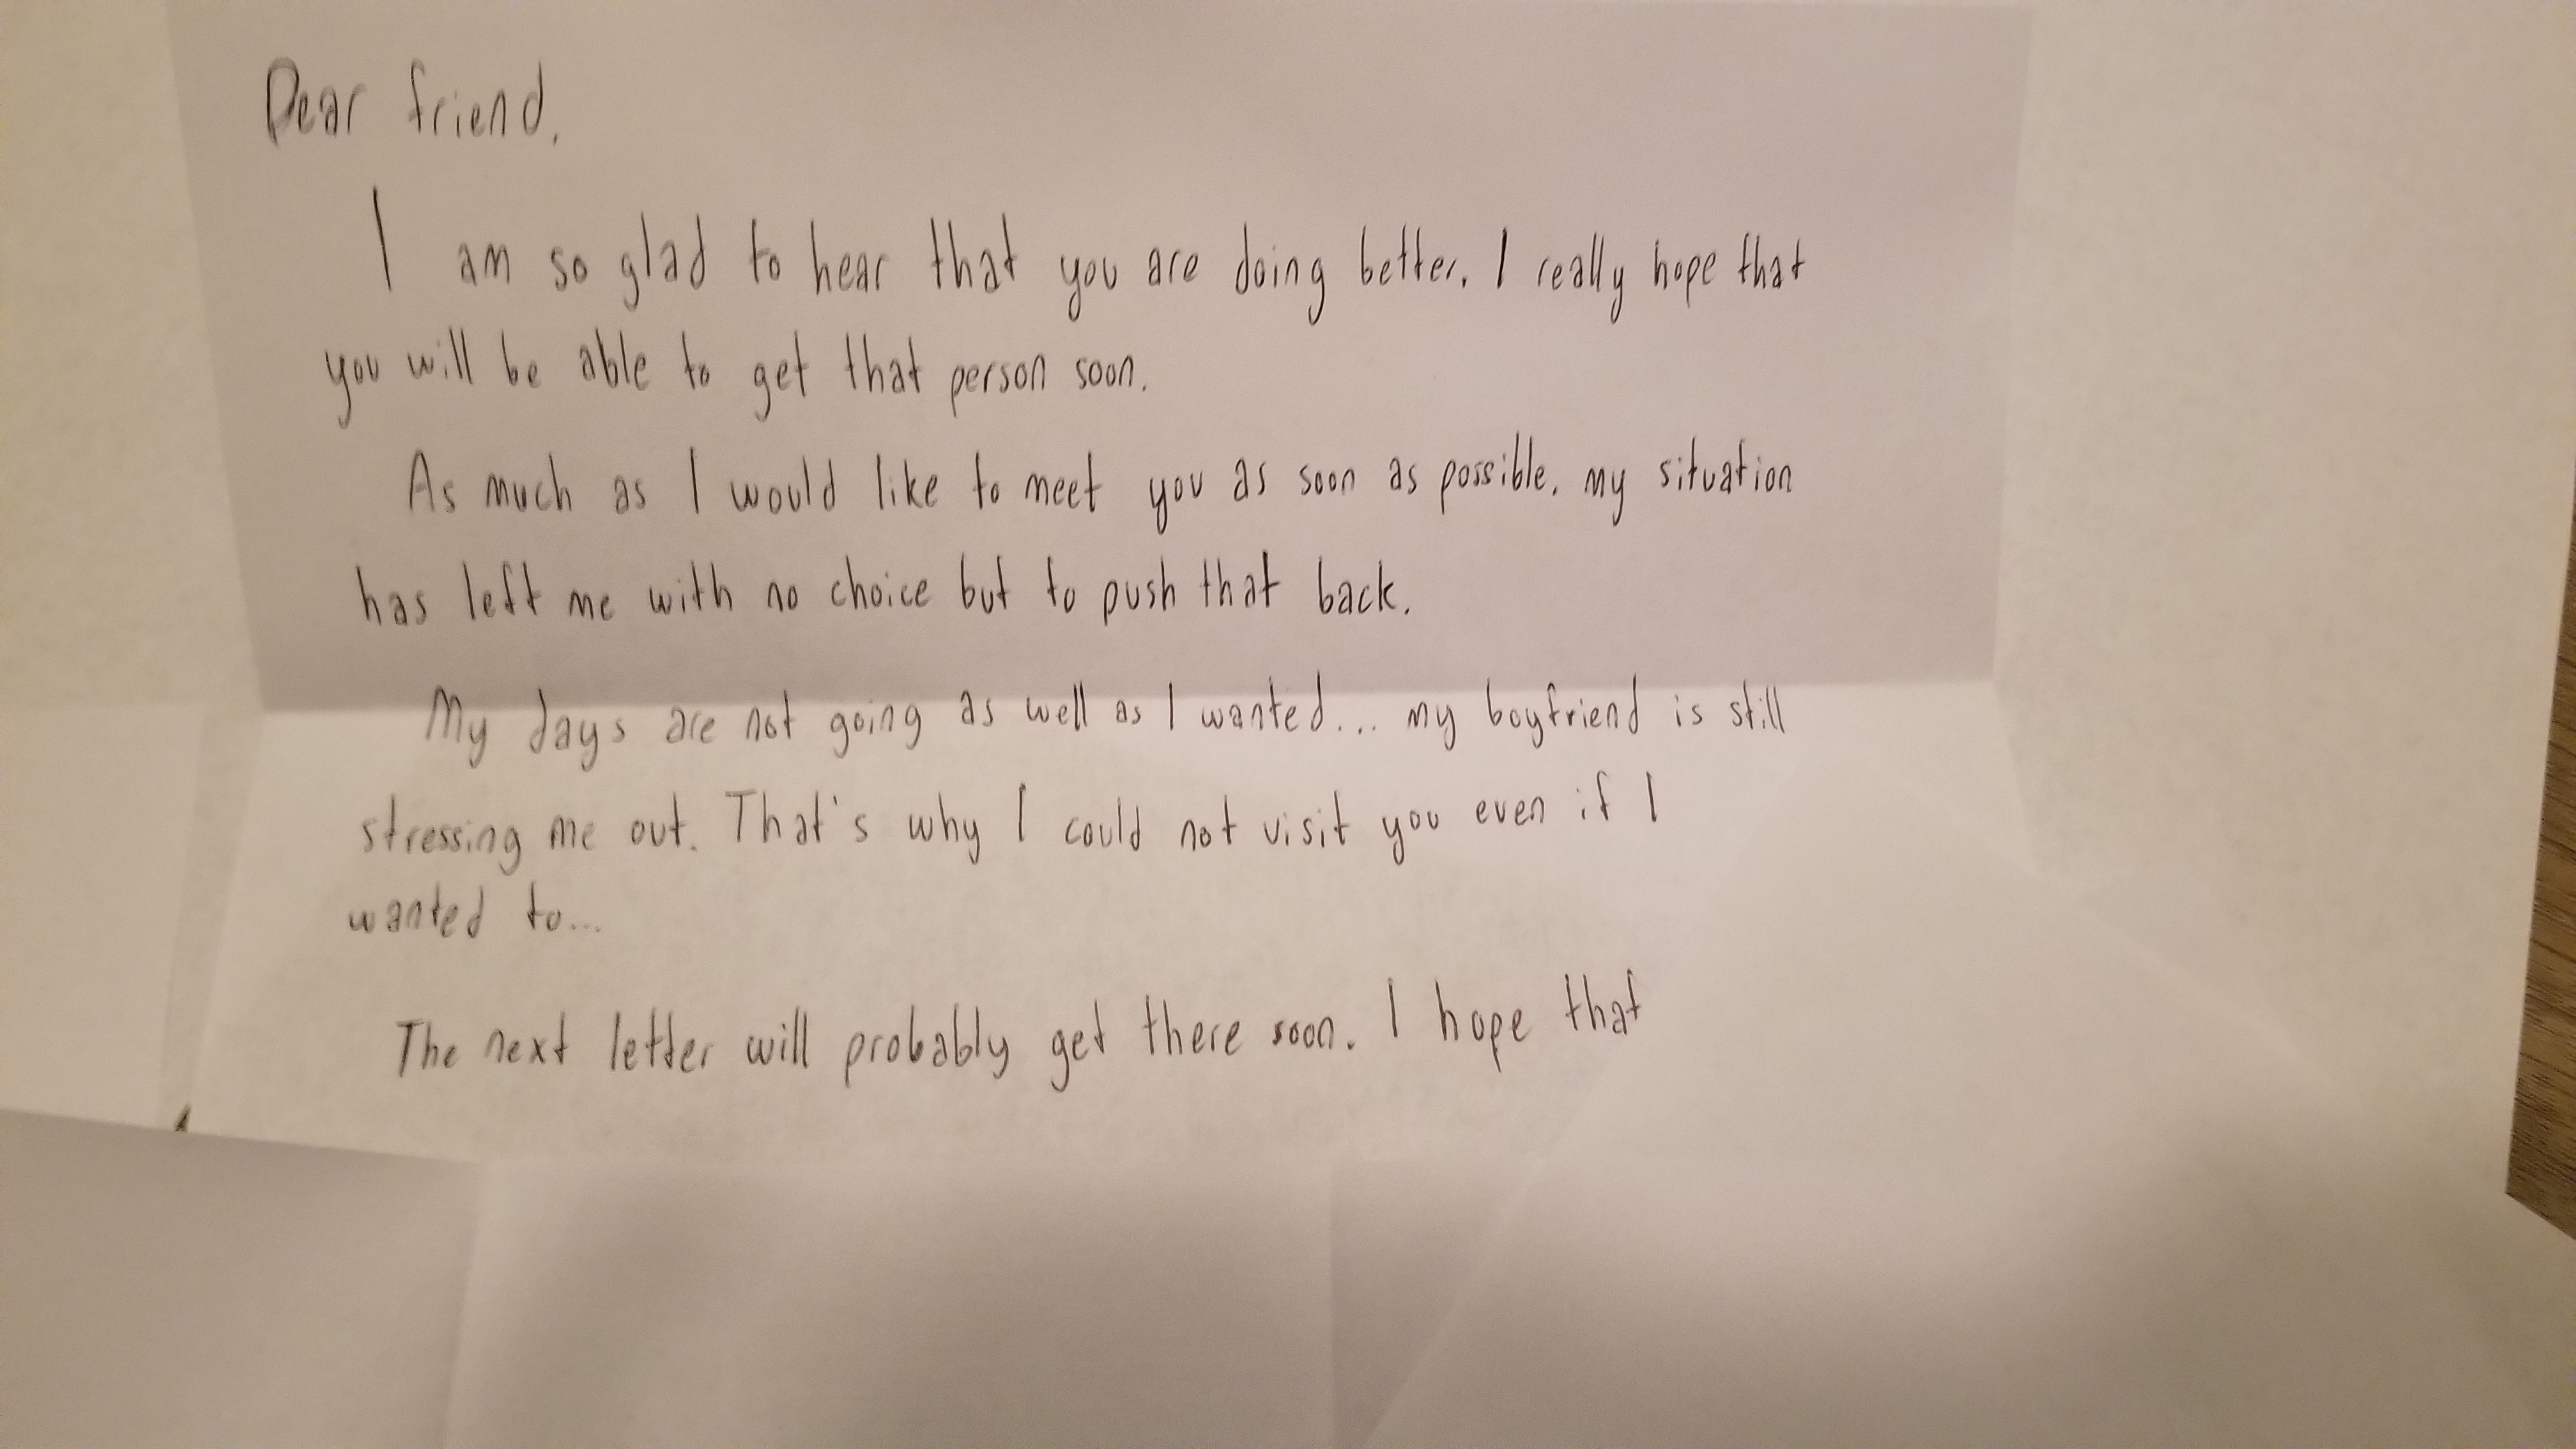 Dear friend,
I am so glad to hear that you are doing better. I really hope that
you will be able to get that person soon.
As much as I would like to meet you as soon as possible, my situation
has left me with no choice but to push that back.
My days are not going as well as I wanted... my boyfriend is still
stressing me out. That's why I could not visit you even if I
wanted to...
The next letter will probably get there soon. I hope that